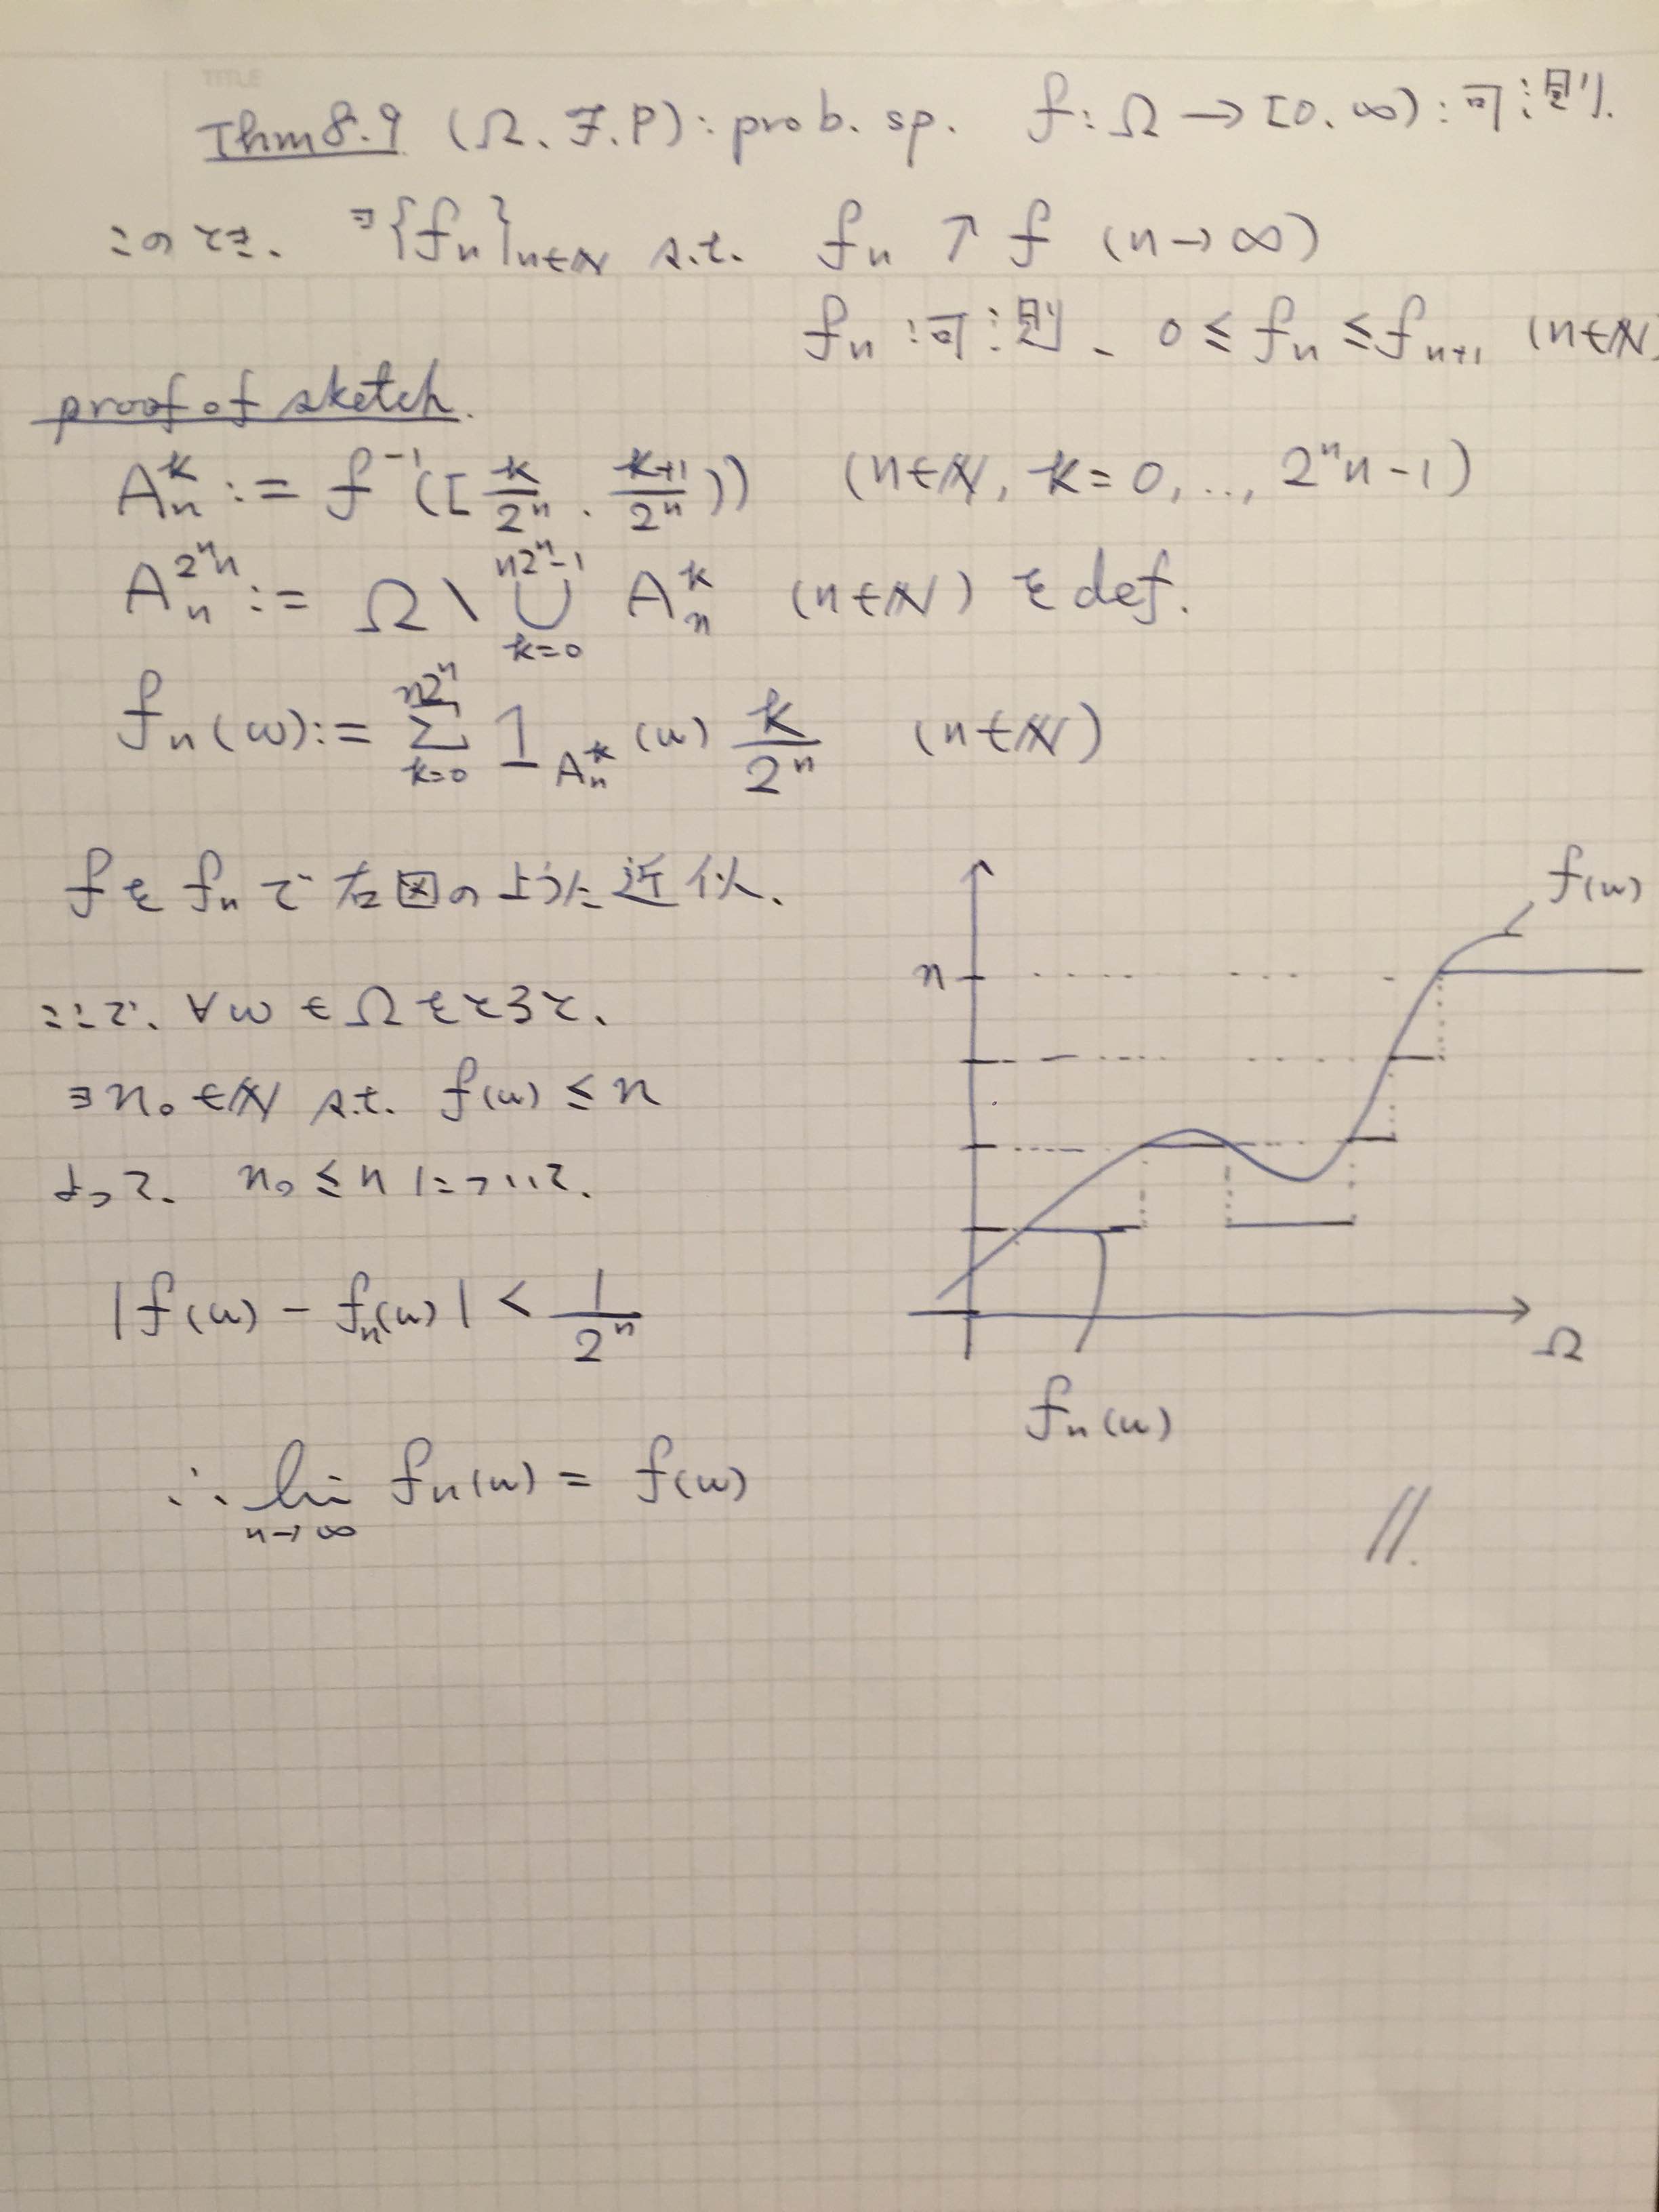 TITLE
Thm8.9 (Ω, F, P) : prob. sp. f : Ω → [0, ∞) : 可測り.
このとき、 ∃{f_n}_{n∈ℕ} s.t. f_n ↑ f (n → ∞)
f_n : 可測、 0 ≤ f_n ≤ f_{n+1} (n∈ℕ)
proof of sketch.
A_n^k := f^{-1}([k/2^n, (k+1)/2^n)) (n∈ℕ, k = 0, ..., 2^n n - 1)
A_n^{2^n n} := Ω \ ⋃_{k=0}^{n2^n-1} A_n^k (n∈ℕ) を def.
f_n(ω) := Σ_{k=0}^{n2^n} 1_{A_n^k}(ω) k/2^n (n∈ℕ)
f を f_n で 右図のように近似、
ここで、 ∀ω ∈ Ω をとると、
∃n_0 ∈ ℕ s.t. f(ω) ≤ n
よって、 n_0 ≤ n について、
|f(ω) - f_n(ω)| < 1/2^n
∴ lim_{n→∞} f_n(ω) = f(ω)
f(ω)
n
Ω
f_n(ω)
//.